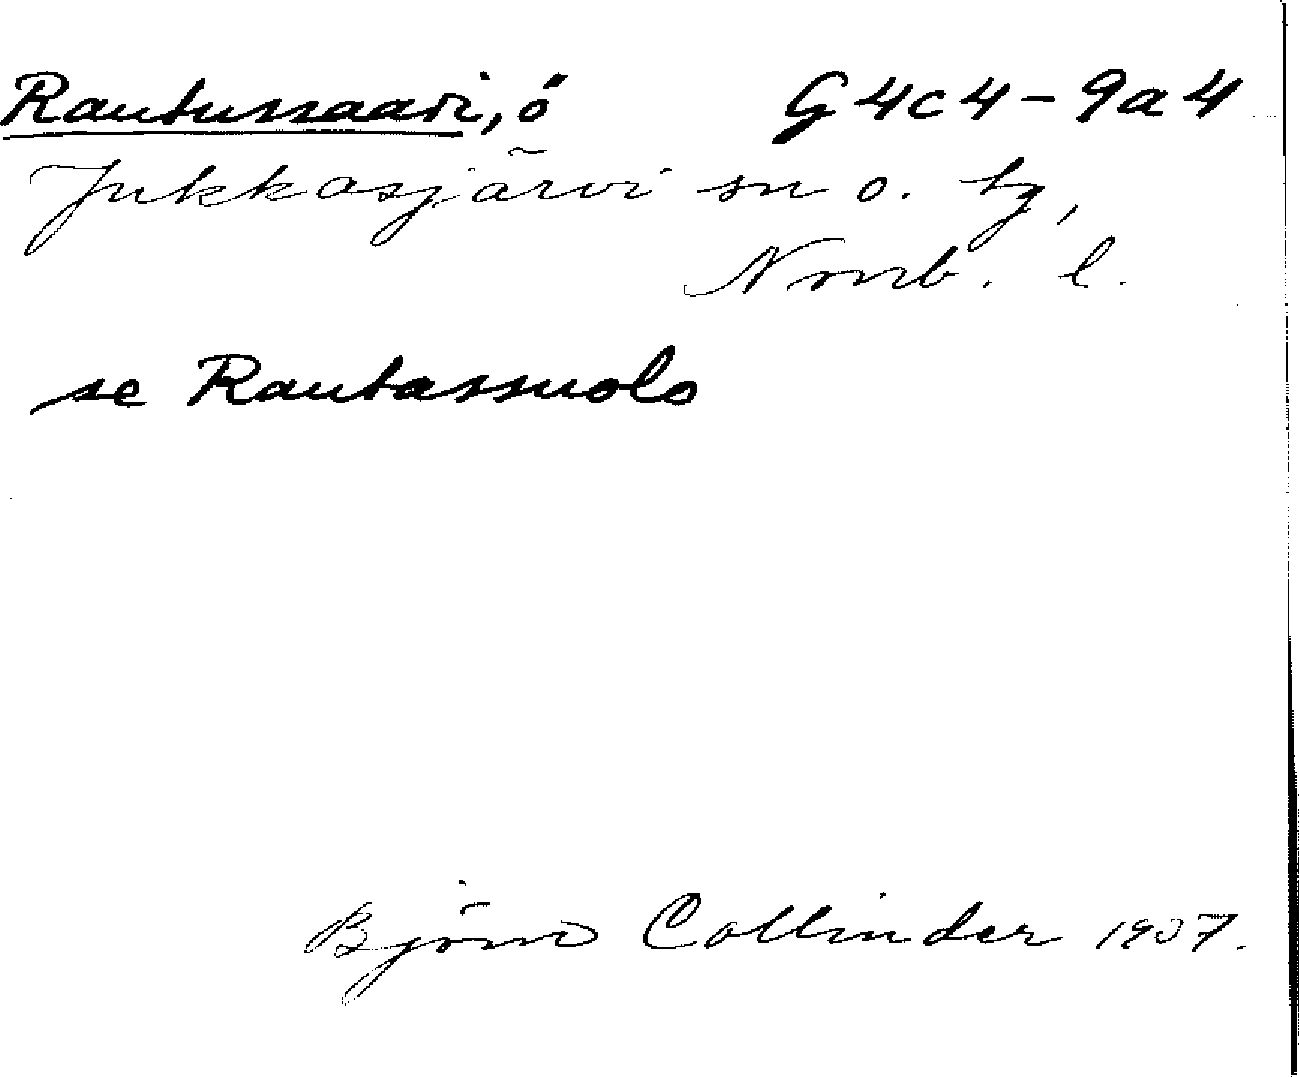 Rautussaari, ö G4c4-9a4
Jukkasjärvi sn o. tg,
Norrb. l.
se Rautassuolo
Björn Collinder 1937.